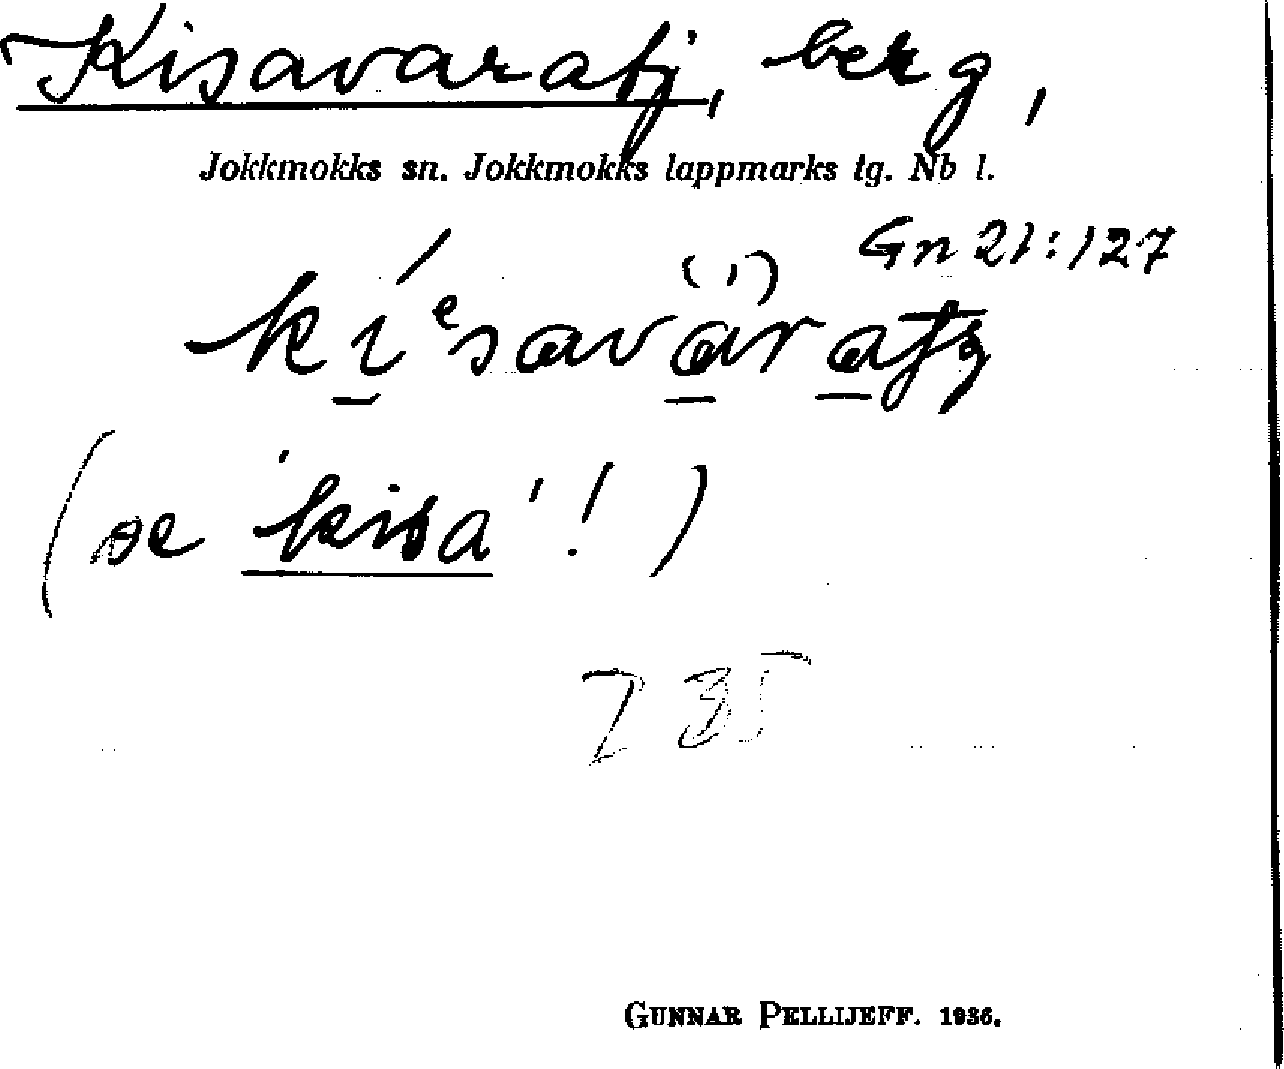 Kisavaratj, berg,
Jokkmokks sn. Jokkmokks lappmarks tg. Nb l.
Gn 21:127
(se kisa'!)
GUNNAR PELLIJEFF. 1936.